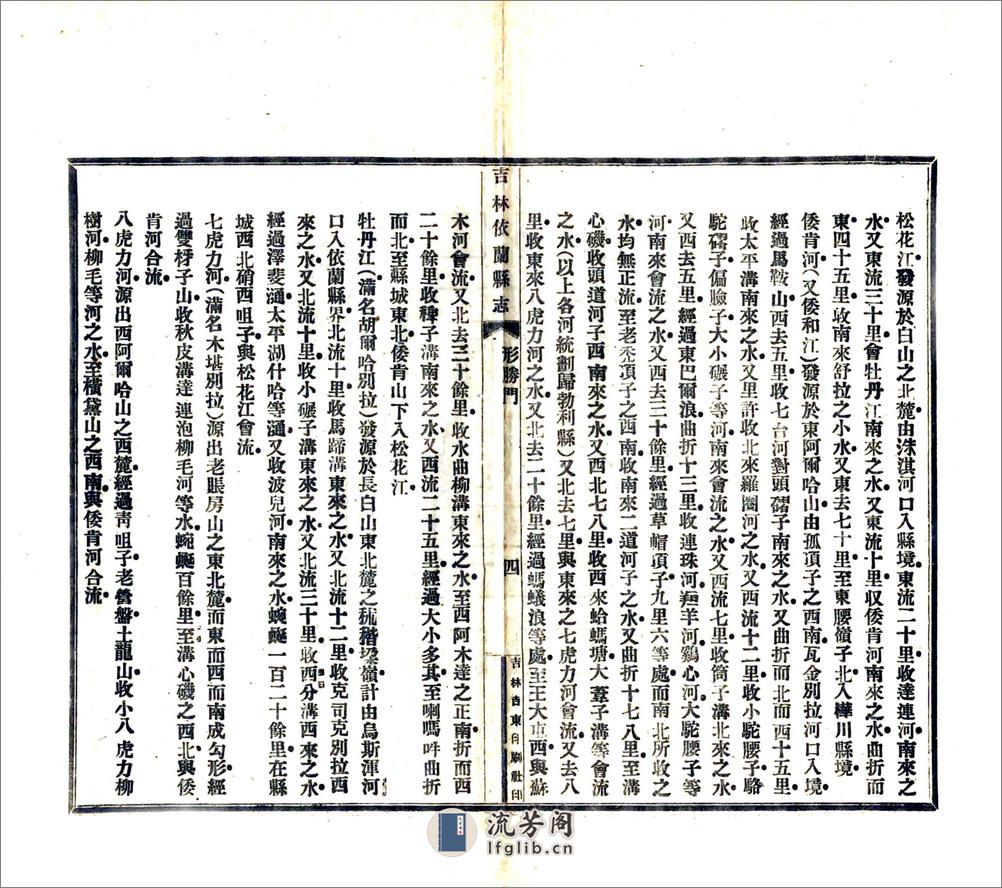 松花江發源於白山之北麓由洙淇河口入縣境東流二十里收達連河南來之
水又東流三十里會牡丹江南來之水又東流十里収倭肯河南來之水曲折而
東四十五里收南來舒拉之小水又東去七十里至東腰嶺子北入樺川縣境
倭肯河(又倭和江)發源於東阿爾哈山由孤頂子之西南瓦金別拉河口入境
經過馬鞍山西去五里收七台河對頭磖子南來之水又曲折而北而西四十五里
收太平溝南來之水又里許收北來羅圈河之水又西流十二里收小駝腰子駱
駝磖子偏臉子大小碾子等河南來會流之水又西流七里收筒子溝北來之水
又西去五里經過東巴爾浪曲折十三里收連珠河羊河鷄心河大駝腰子
河南來會流之水又西去三十餘里經過草帽頂子九里六等處而南北所收之
水均無正流至老禿頂子之西南收南來二道河子之水又曲折十七八里至溝
心磯收頭道河子西南來之水又西北七八里收西來蛤螞塘大葦子溝等會流
之水(以上各河統劃歸勃利縣)又北去七里與東來之七虎力河會流又去八
里收東來八虎力河之水又北去二十餘里經過螞蟻浪等處至王大屯西與蘇
吉林依蘭縣志 形勝門 四 吉林吉東印刷社印
木河會流又北去三十餘里收水曲柳溝東來之水至西阿木達之正南折而西
二十餘里收裨子溝南來之水又西流二十五里經過大小多其至喇嗎咩曲折
而北至縣城東北倭肯山下入松花江
牡丹江(滿名胡爾哈別拉)發源於長白山東北麓之嶺計由烏斯渾河
口入依蘭縣界北流十里收馬蹄溝東來之水又北流十二里收克司克別拉西
來之水又北流十里收小碾子溝東來之水又北流三十里收西分溝西來之水
經過澤斐通太平湖什哈等通又收波兒河南來之水蜿蜒一百二十餘里在縣
城西北硝西咀子與松花江會流
七虎力河(滿名木堪別拉)源出老賬房山之東北麓而東而西而南成勾形經
過雙枒子山收秋皮溝達連泡柳毛河等水蜿蜒百餘里至溝心磯之西北與倭
肯河合流
八虎力河源出西阿爾哈山之西麓經過靑咀子老營盤土龍山收小八虎力柳
樹河柳毛等河之水至橫黛山之西南與倭肯河合流
流芳阁
lfglib.cn